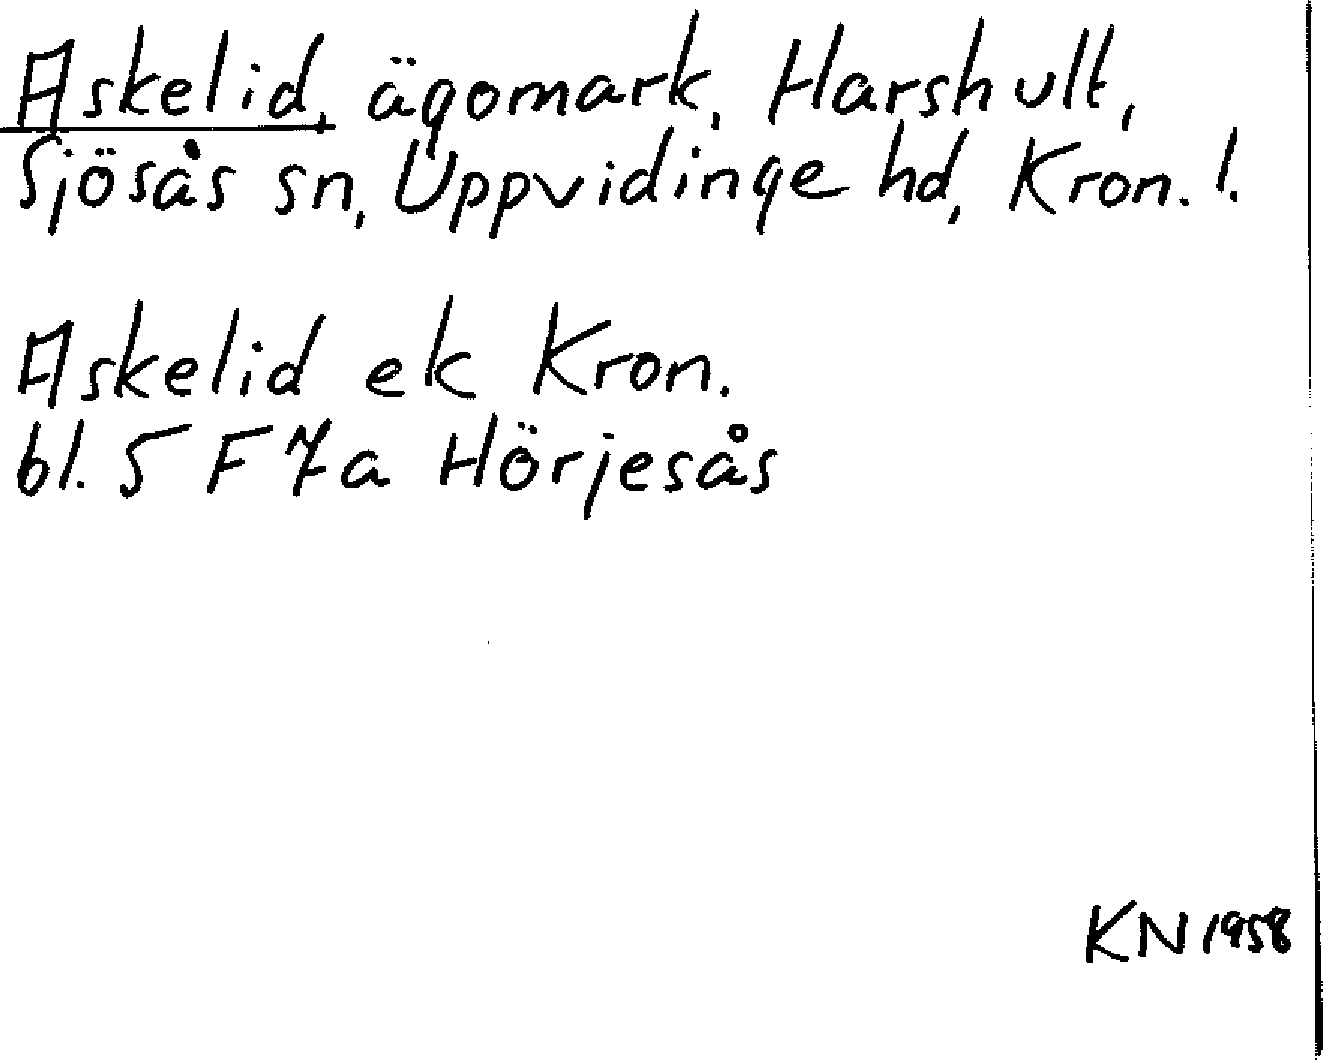 Askelid, ägomark, Harshult,
Sjösås sn, Uppvidinge hd, Kron. l.
Askelid ek Kron.
bl. 5 F 7a Hörjesås
KN 1958